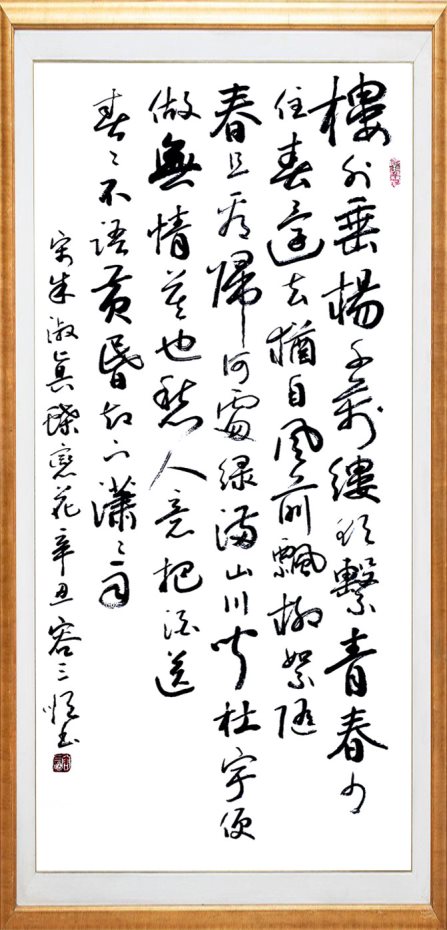 樓外垂楊千萬縷欲繫青春少
住春還去猶自風前飄柳絮隨
春且看歸何處绿满山川闻杜宇便
做無情莫也愁人意把酒送
春〻不语黄昏却下瀟〻雨
宋朱淑真蝶戀花辛丑容三书